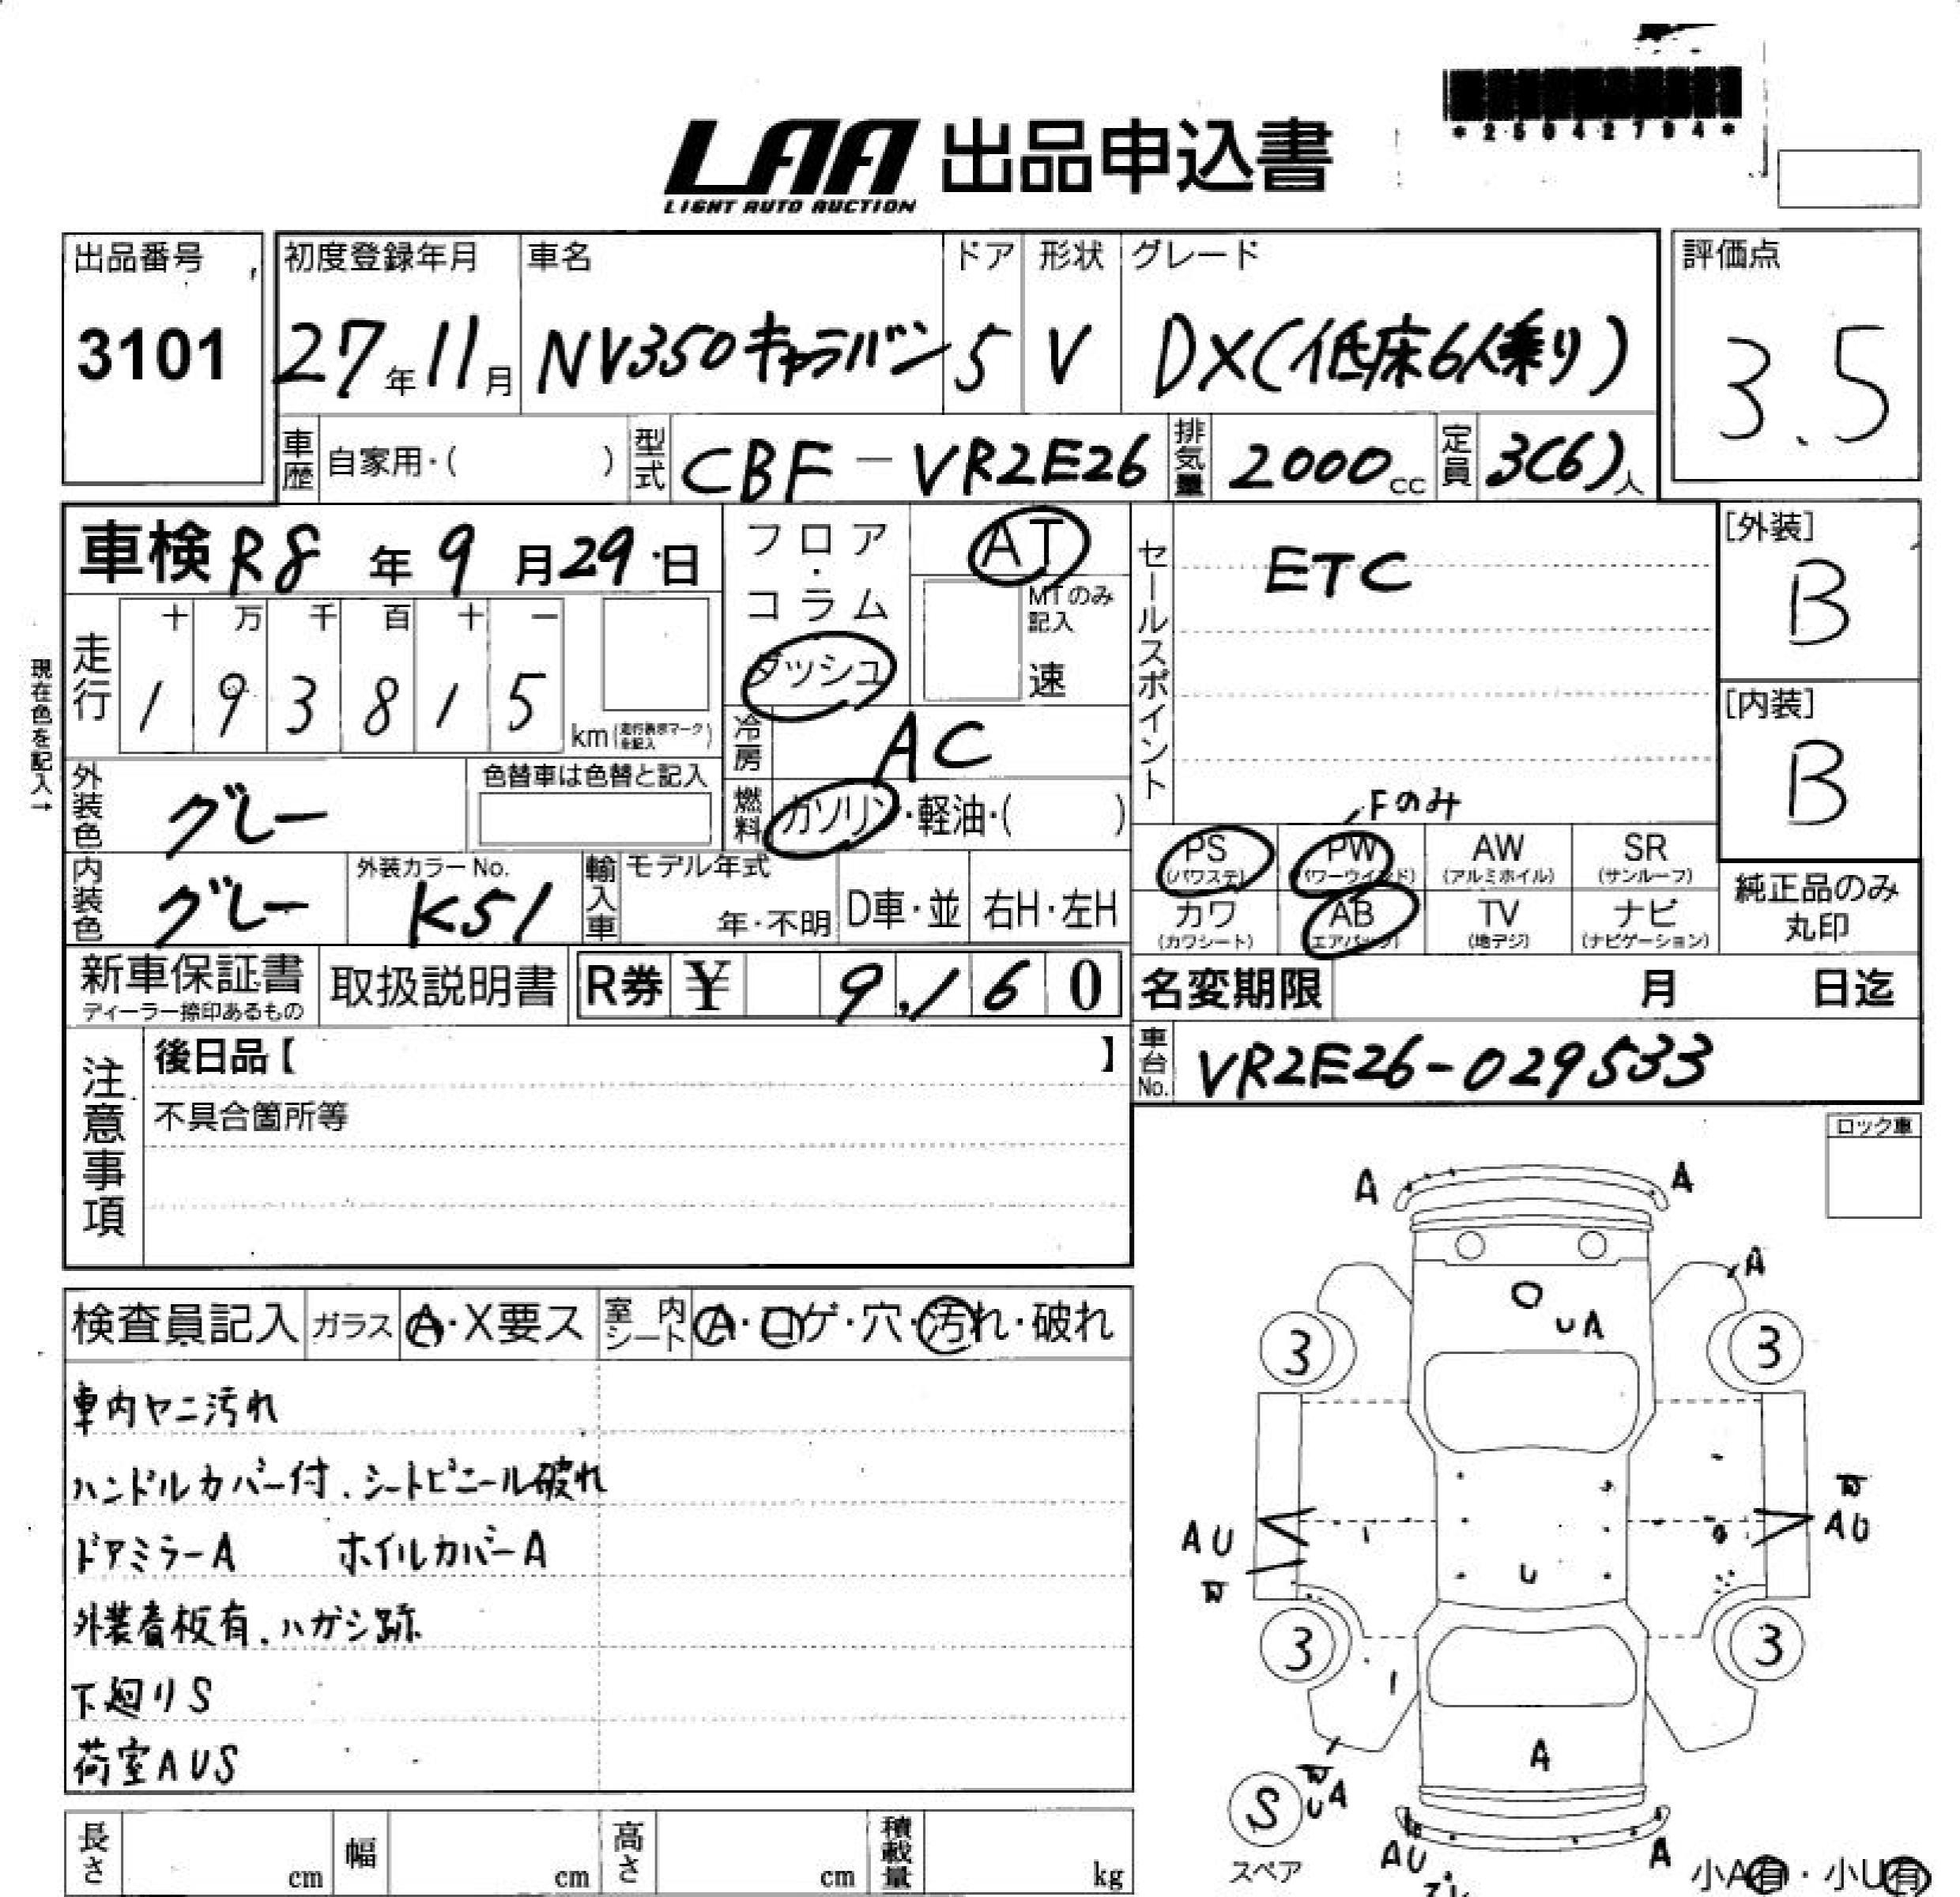 *25042794*
LAA 出品申込書
LIGHT AUTO AUCTION
出品番号
3101
初度登録年月
27年11月
車名
NV350キャラバン
ドア
5
形状
V
グレード
DX(低床6人乗り)
評価点
3.5
車歴 自家用・( )
型式 CBF-VR2E26
排気量 2000cc
定員 3(6)人
車検 R8年9月29日
フロア・コラム
ダッシュ
AT
MTのみ記入
速
セールスポイント
ETC
[外装]
B
現在色を記入→
走行
十 万 千 百 十 一
1 9 3 8 1 5
km(走行表示マークを記入)
冷房 AC
[内装]
B
外装色 グレー
色替車は色替と記入
燃料 ガソリン・軽油・( )
Fのみ
PS
(パワステ)
PW
(パワーウインド)
AW
(アルミホイル)
SR
(サンルーフ)
内装色 グレー
外装カラーNo.
K51
輸入車
モデル年式
年・不明
D車・並
右H・左H
カワ
(カワシート)
AB
(エアバッグ)
TV
(地デジ)
ナビ
(ナビゲーション)
純正品のみ
丸印
新車保証書
ディーラー捺印あるもの
取扱説明書
R券 ¥ 9,160
名変期限 月 日迄
車台No. VR2E26-029533
注意事項
後日品【 】
不具合箇所等
ロック車
検査員記入
ガラス A・X要ス
室内シート A・コゲ・穴・汚れ・破れ
車内ヤニ汚れ
ハンドルカバー付、シートビニール破れ
ドアミラーA ホイルカバーA
外装看板有、ハガシ跡
下廻りS
荷室AUS
A A
A
UA
3 3
AU AU
U
3 3
A
S
スペア
UA
AU A
小A有・小U有
長さ cm
幅 cm
高さ cm
積載量 kg